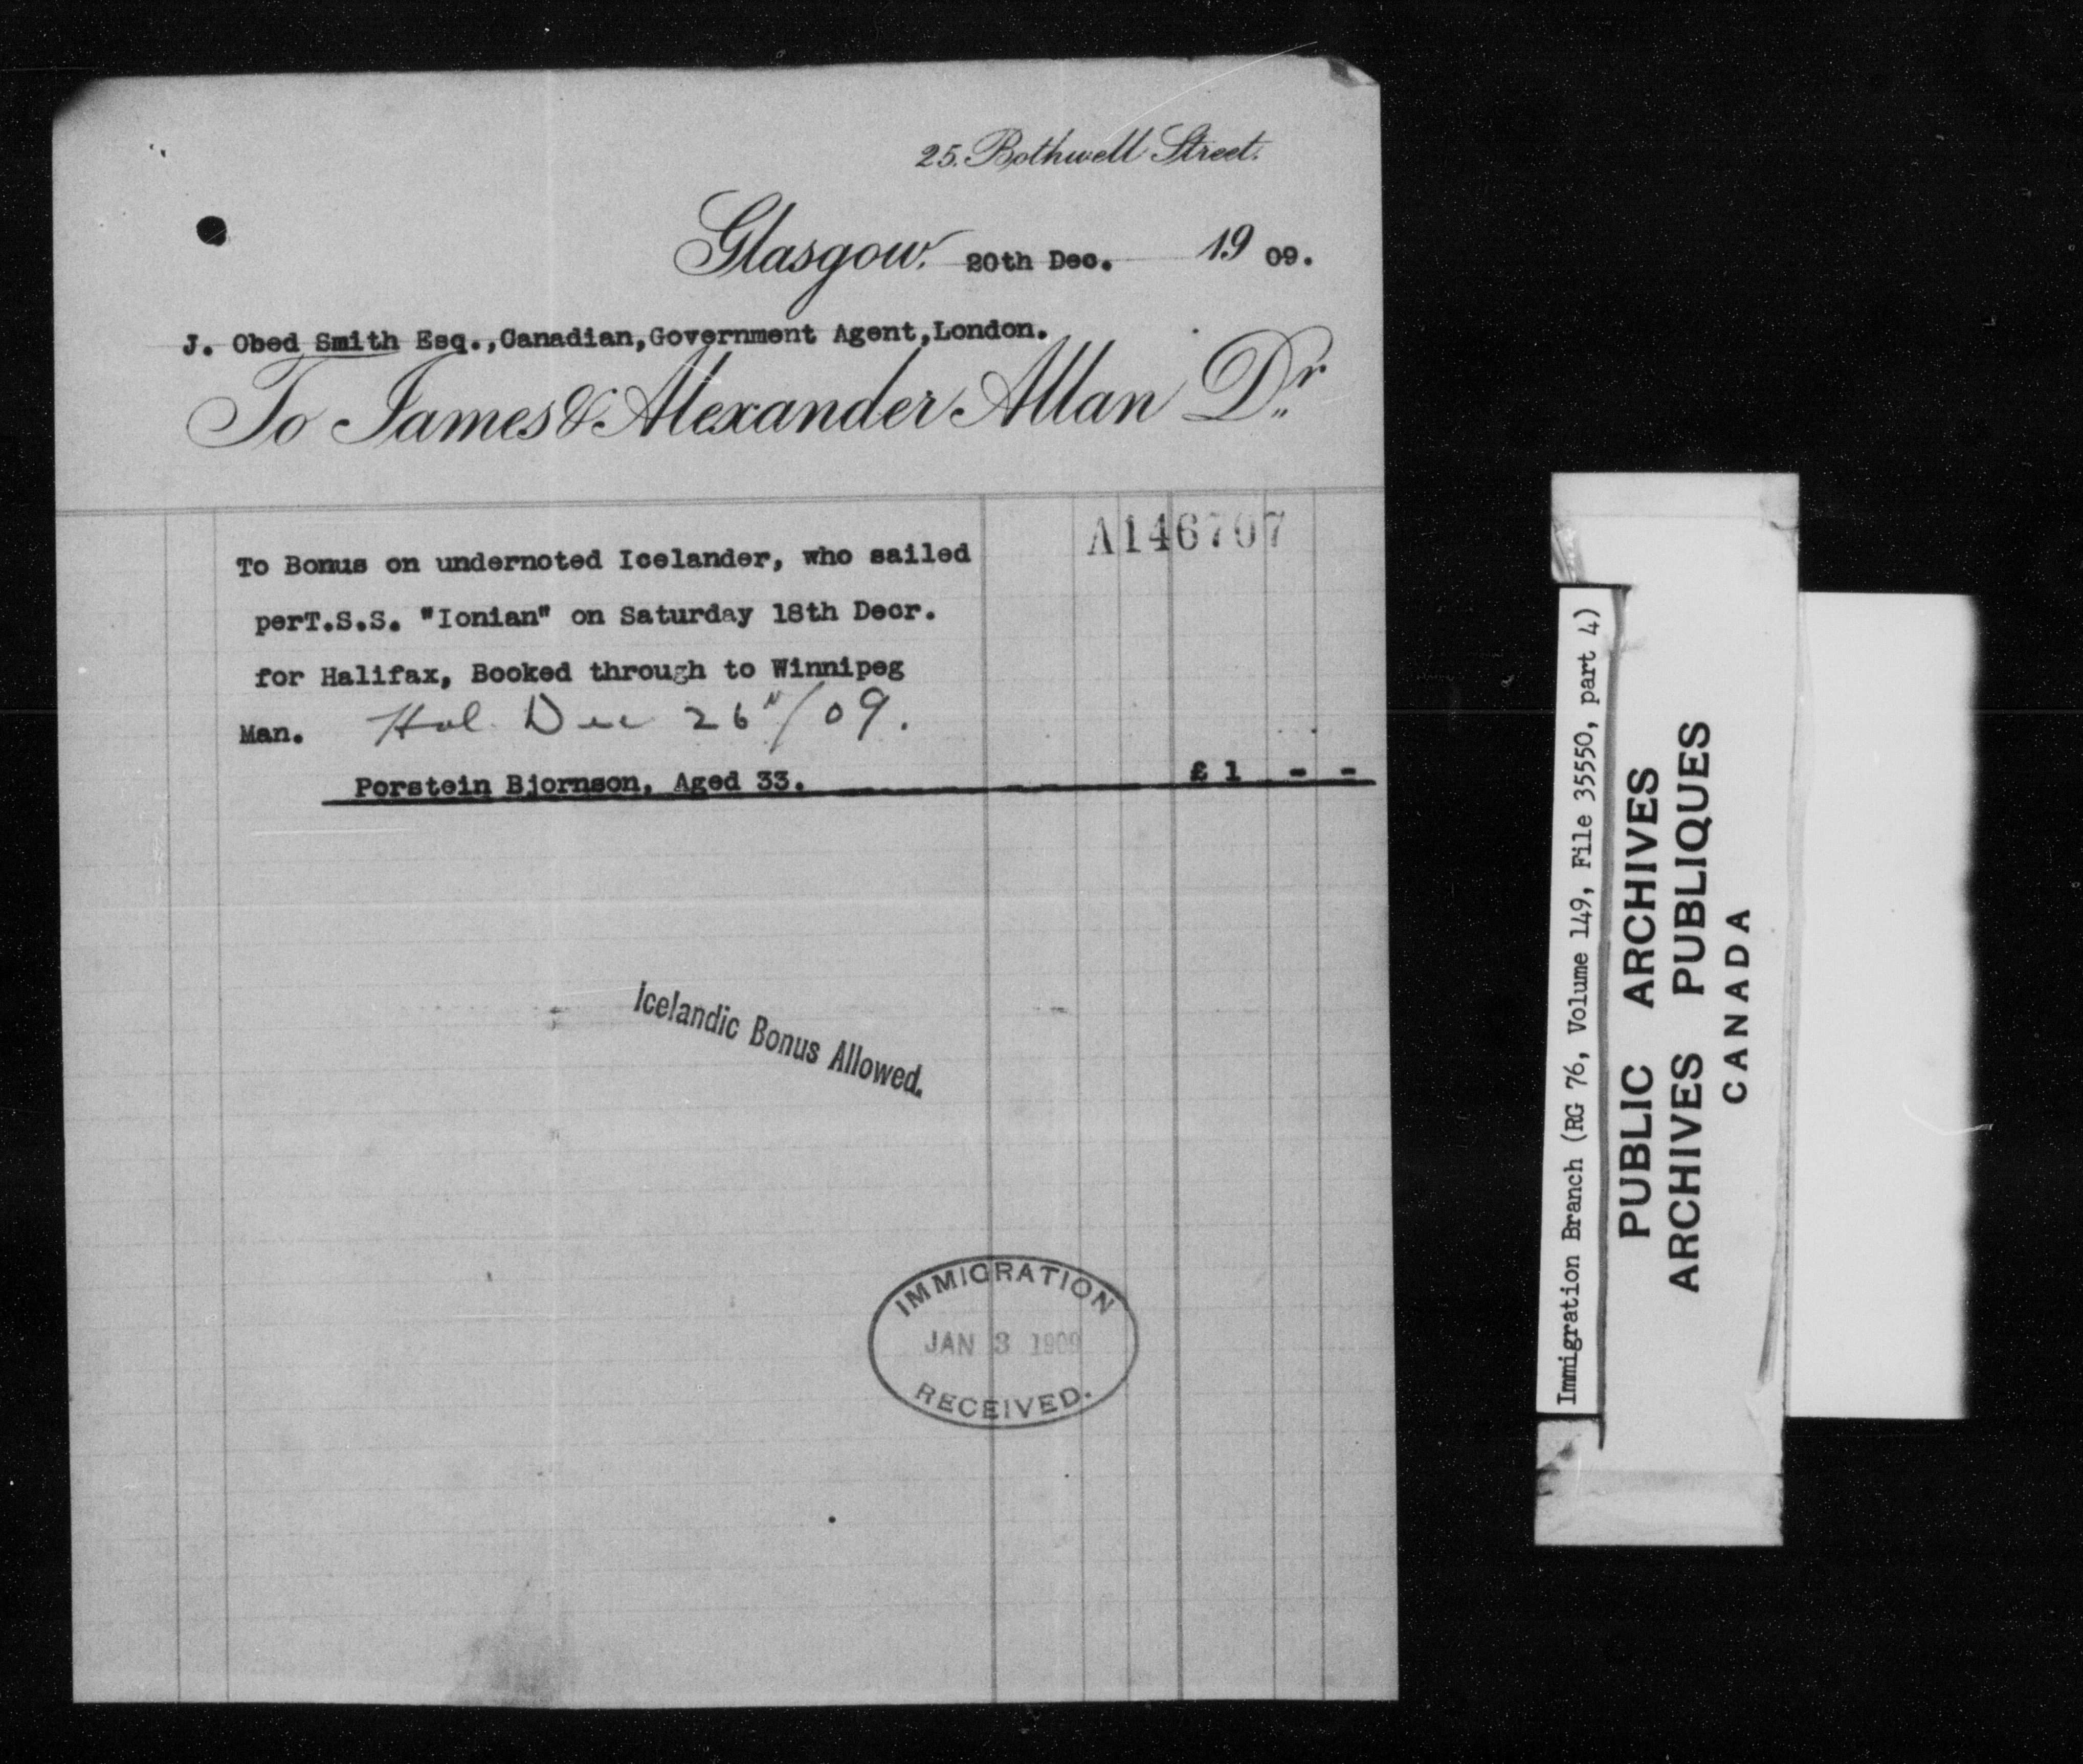 25. Bothwell Street.
Glasgow. 20th Dec. 1909.
J. Obed Smith Esq.,Canadian,Government Agent,London.
To James & Alexander Allan Dr.
A146707
To Bonus on undernoted Icelander, who sailed
perT.S.S. "Ionian" on Saturday 18th Decr.
for Halifax, Booked through to Winnipeg
Man. Hal. Dec 26"/09.
Porstein Bjornson, Aged 33. £ 1 - -
Icelandic Bonus Allowed.
IMMIGRATION
JAN 3 1909
RECEIVED.
Immigration Branch (RG 76, Volume 149, File 35550, part 4)
PUBLIC ARCHIVES
ARCHIVES PUBLIQUES
CANADA